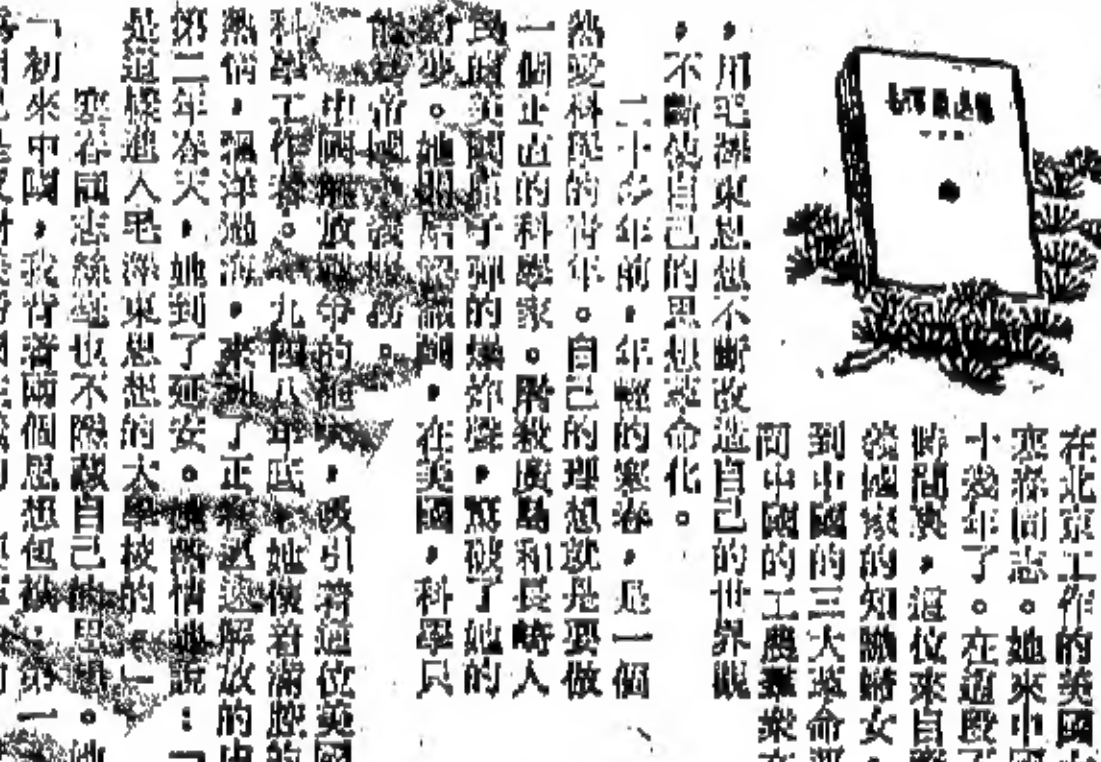 在北京工作的美國
同志。她來中國
十幾年了。在這段
時間裏,這位來自
國家的知識婦女,
到中國的三大革命運
同中國的工農羣衆在
,用毛澤東思想不斷改造自己的世界觀
,不斷使自己的思想革命化。
二十多年前,年輕的寒春,是一個
熱愛科學的青年。自己的理想就是要做
一個正直的科學家。屠殺廣島和長崎人
美國原子彈的爆炸聲,驚破了她的
好夢。她開始認識到,在美國,科學只
能爲帝國主義服務。
中國解放戰爭的炮火,吸引着這位美國
科學工作者。一九四八年底,她懷着滿腔的
熱情,飄洋過海,來到了正在迅速解放的中
第二年春天,她到了延安。熱情地說:「
是這樣進入毛澤東思想的大學校的。」
寒春同志絲毫也不隱藏自己的思想。她
「初來中國,我背着兩個思想包袱:第一